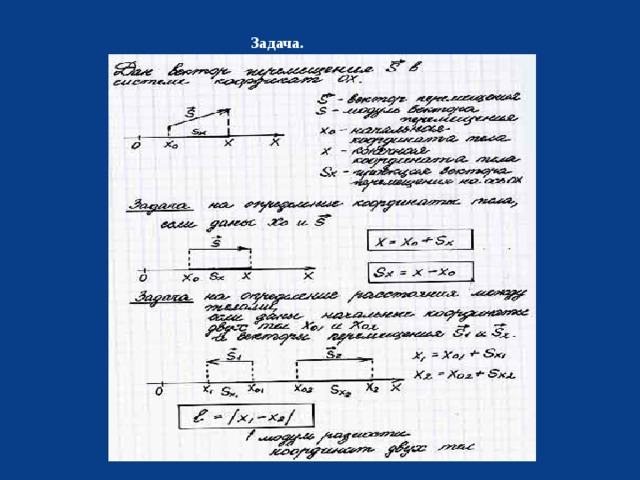 Задача.
Дан вектор перемещения S в
системе координат OX.
S
Sx
0 x₀ X X
S - вектор перемещения
S - модуль вектора
перемещения
x₀ - начальная
координата тела
X - конечная
координата тела
Sx - проекция вектора
перемещения на ось OX
Задача на определение координаты тела,
если даны x₀ и S
S
0 x₀ Sx X X
X = X₀ + Sx
Sx = x - x₀
Задача на определение расстояния между
телами,
если даны начальные координаты
двух тел X₀₁ и X₀₂
а векторы перемещения S₁ и S₂.
S₁ S₂
0 x₁ Sx₁ x₀₁ x₀₂ Sx₂ x₂ X
x₁ = x₀₁ + Sx₁
x₂ = x₀₂ + Sx₂
ℓ = |x₁ - x₂|
модуль разности
координат двух тел